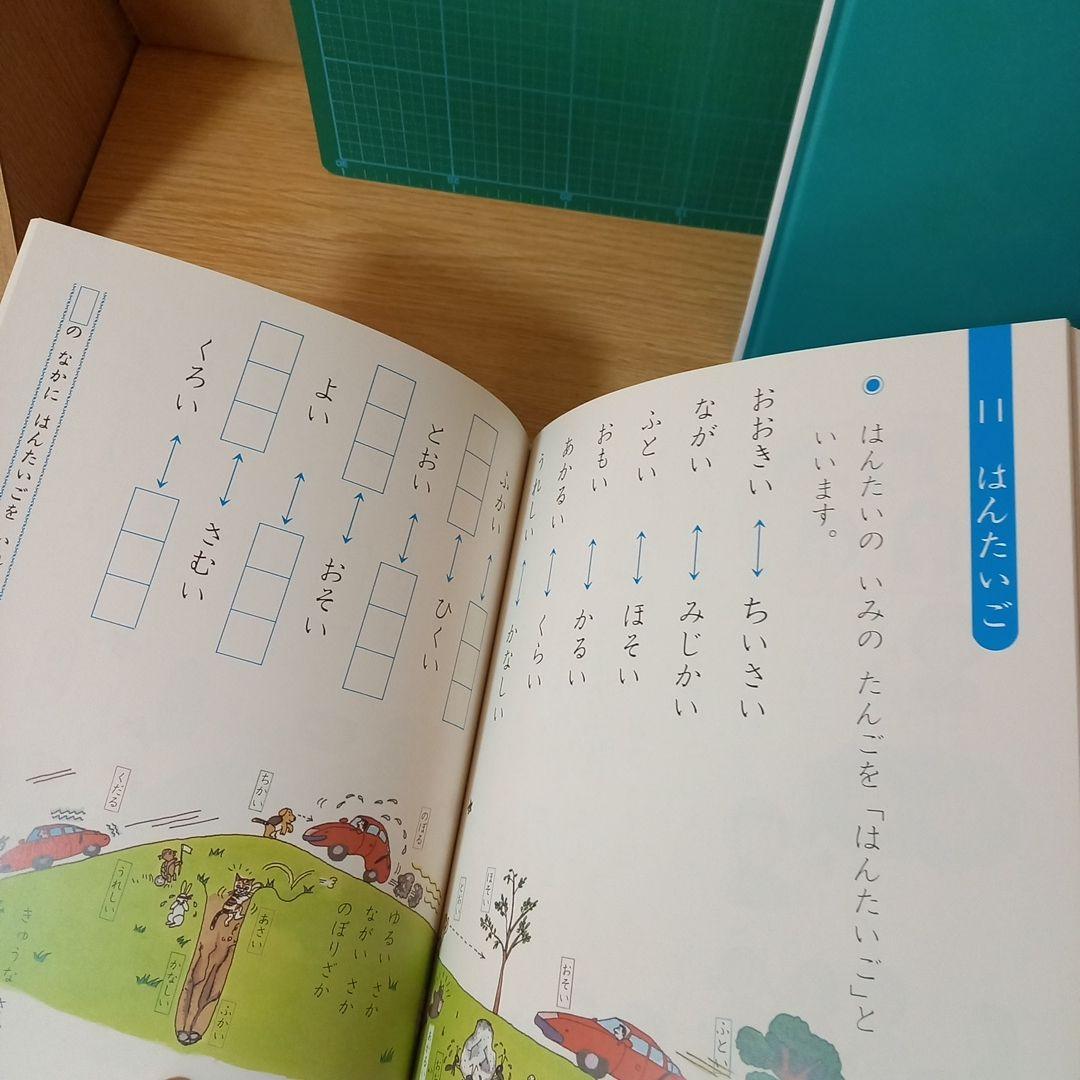 11 はんたいご
はんたいの いみの たんごを「はんたいご」と
いいます。
おおきい ↔ ちいさい
ながい ↔ みじかい
ふとい ↔ ほそい
おもい ↔ かるい
あかるい ↔ くらい
うれしい ↔ かなしい
ふかい ↔
↔ ひくい
とおい ↔
↔ おそい
よい ↔
↔ さむい
くろい ↔
の なかに はんたいごを
ふとい
おそい
ほそい
とおい
のぼる
ちかい
くだる
うれしい
あさい
かなしい
ふかい
ゆるい さか
ながい さか
のぼりざか
きゅうな